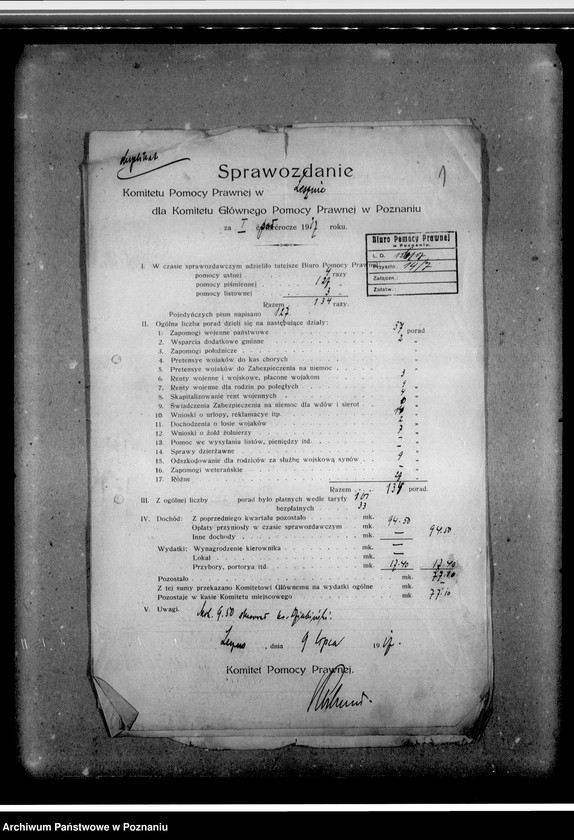 Duplikat
1
Sprawozdanie
Komitetu Pomocy Prawnej w Lesznie
dla Komitetu Głównego Pomocy Prawnej w Poznaniu
za I półrocze 1917 roku.
Biuro Pomocy Prawnej
w Poznaniu.
L. D.
Przyszło: 14/7
Załączn.:
Załatw.:
I. W czasie sprawozdawczym udzieliło tutejsze Biuro Pomocy Prawnej
pomocy ustnej 4 razy
pomocy piśmiennej 127 „
pomocy listownej 3 „
Razem 134 razy.
Pojedyńczych pism napisano 127
II. Ogólna liczba porad dzieli się na następujące działy:
1. Zapomogi wojenne państwowe 54 porad
2. Wsparcia dodatkowe gminne 2 „
3. Zapomogi położnicze „
4. Pretensye wojaków do kas chorych „
5. Pretensye wojaków do Zabezpieczenia na niemoc „
6. Renty wojenne i wojskowe, płacone wojakom 3 „
7. Renty wojenne dla rodzin po poległych „
8. Skapitalizowanie rent wojennych „
9. Świadczenia Zabezpieczenia na niemoc dla wdów i sierot „
10. Wnioski o urlopy, reklamacye itp. „
11. Dochodzenia o losie wojaków 2 „
12. Wnioski o żołd żołnierzy „
13. Pomoc we wysyłaniu listów, pieniędzy itd. — „
14. Sprawy dzierżawne — „
15. Odszkodowanie dla rodziców za służbę wojskową synów 9 „
16. Zapomogi weterańskie — „
17. Różne „
Razem 134 porad.
III. Z ogólnej liczby porad było płatnych wedle taryfy 101
bezpłatnych 33
IV. Dochód: Z poprzedniego kwartału pozostało mk.
Opłaty przyniosły w czasie sprawozdawczym mk. 94.50
Inne dochody mk. — 94.50
Wydatki: Wynagrodzenie kierownika mk. —
Lokal mk. —
Przybory, portorya itd. mk. 17.40 17.40
Pozostało mk. 77.10
Z tej sumy przekazano Komitetowi Głównemu na wydatki ogólne mk. —
Pozostaje w kasie Komitetu miejscowego mk 77.10
V. Uwagi. 9.50 ks.
Leszno, dnia 9 lipca 1917.
Komitet Pomocy Prawnej.
Archiwum Państwowe w Poznaniu